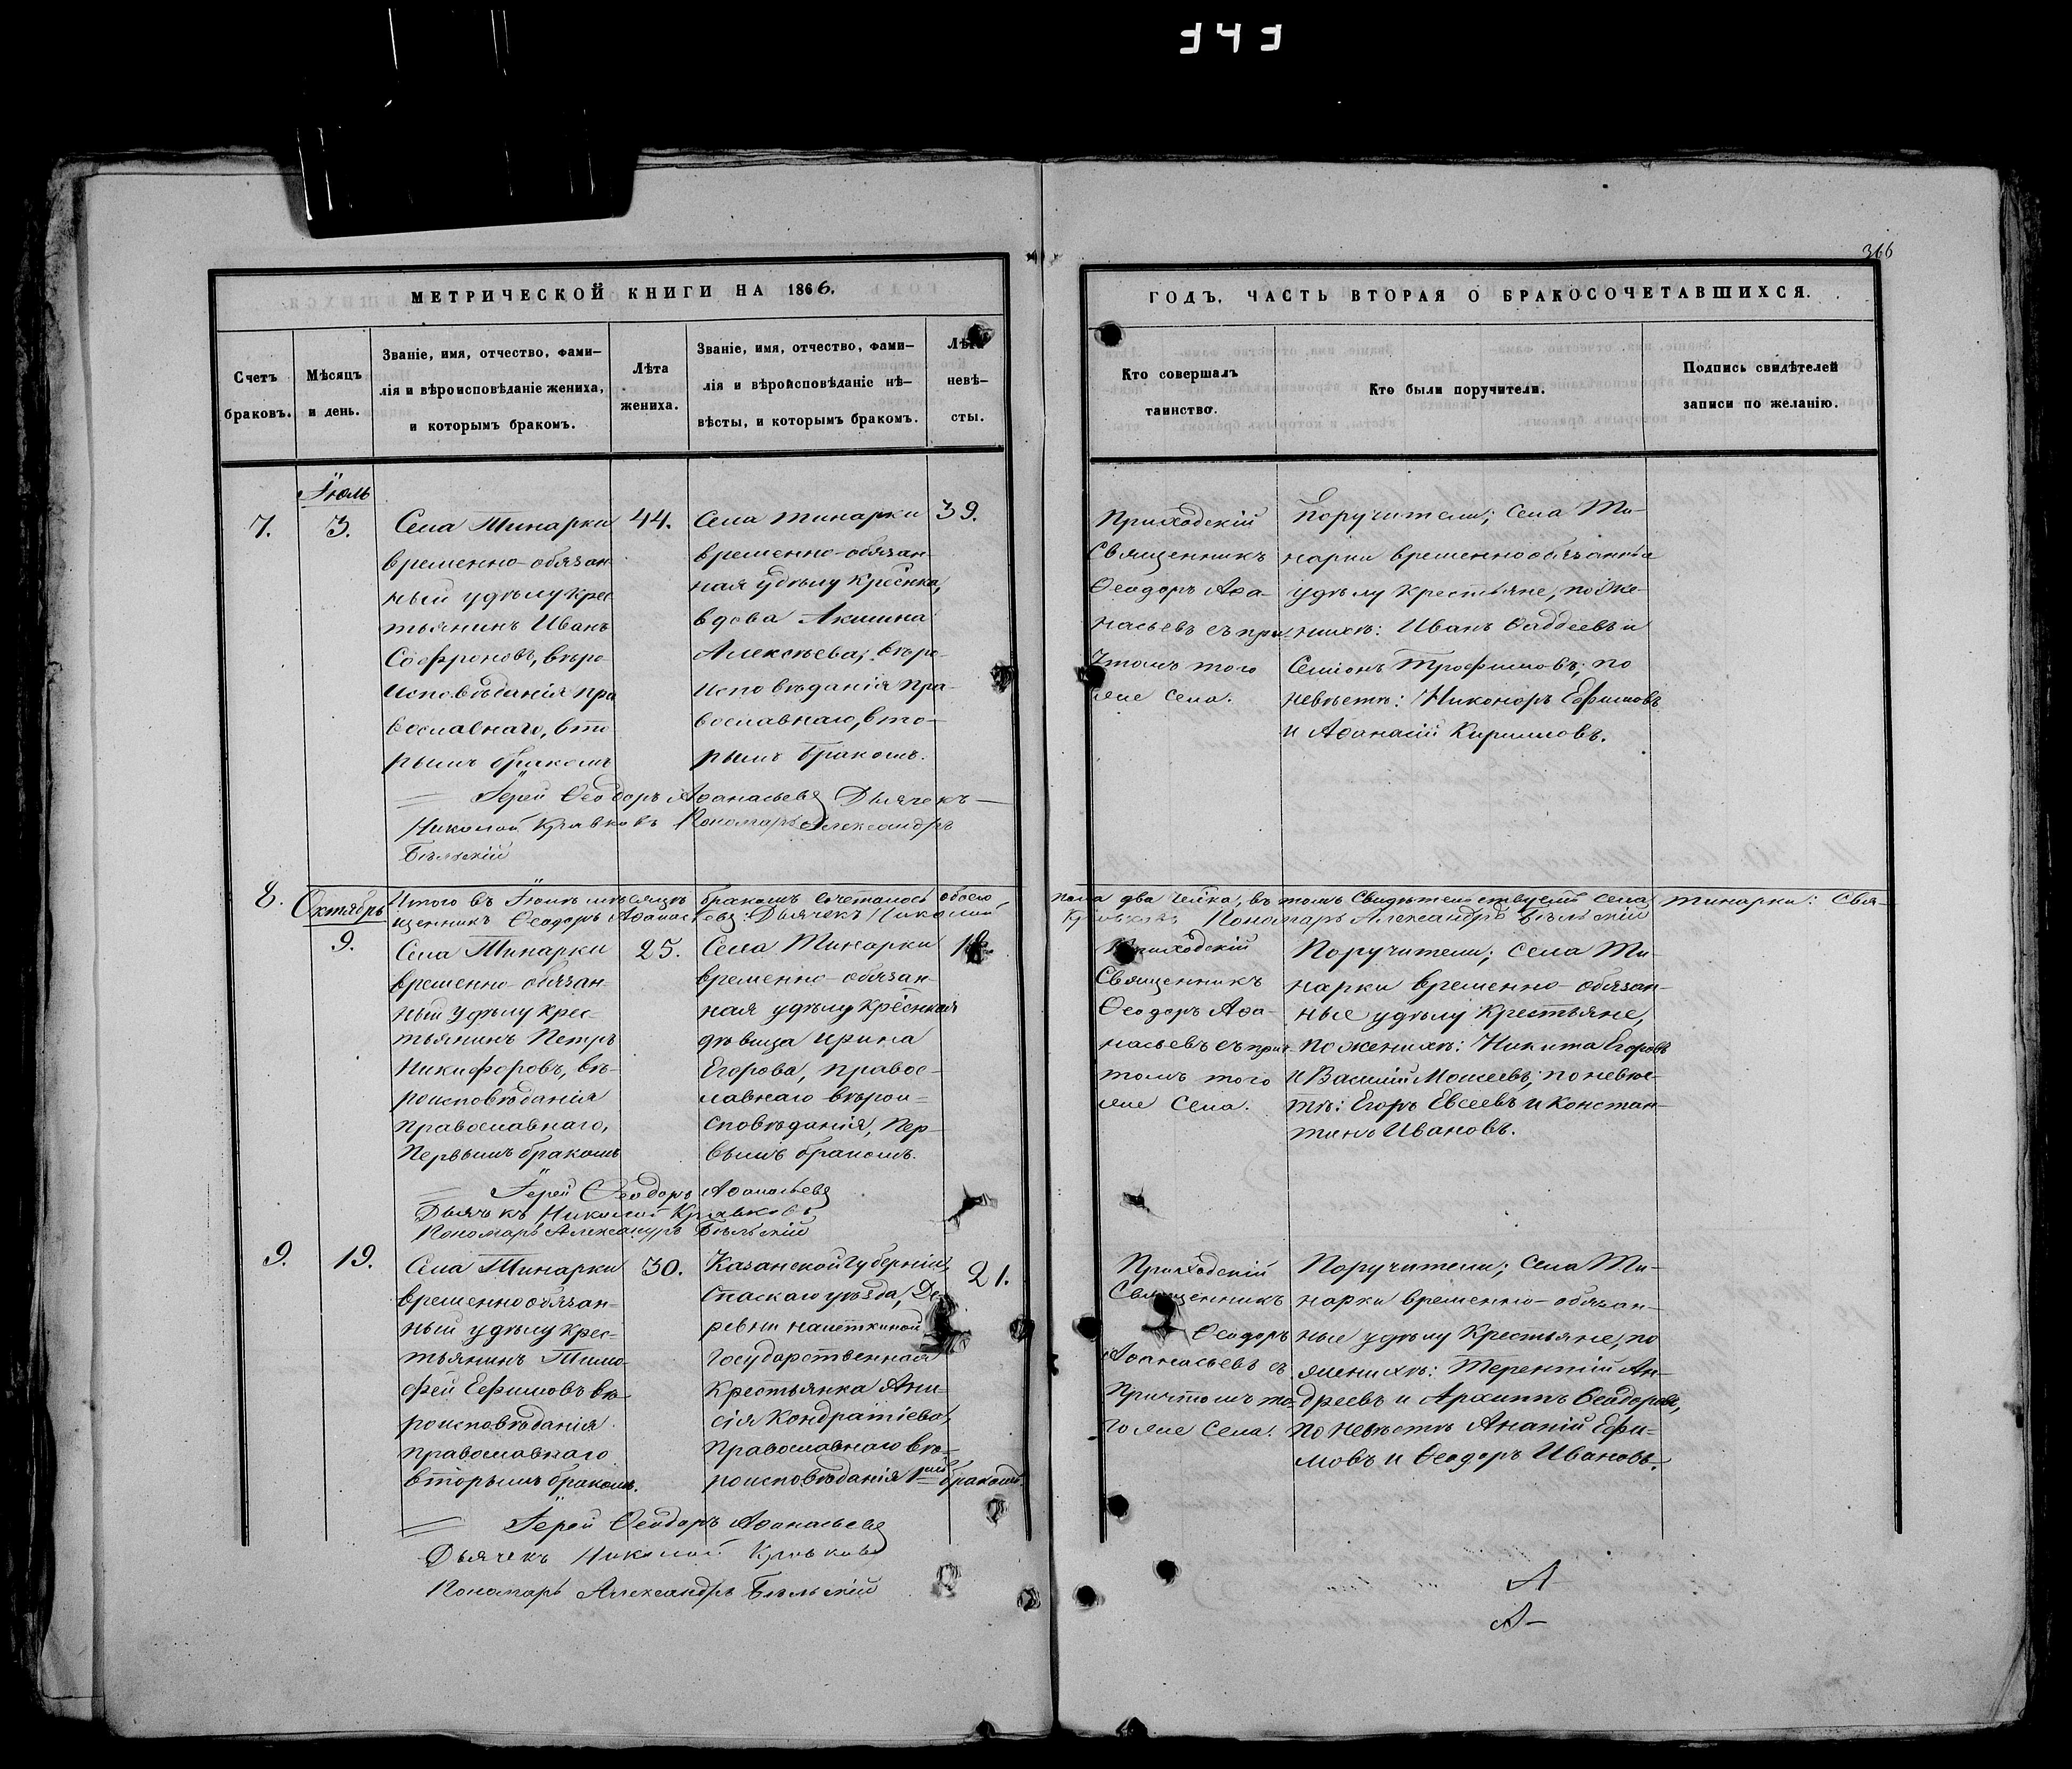 366
МЕТРИЧЕСКОЙ КНИГИ НА 1866.
Счетъ
браковъ.
Мѣсяцъ
и день.
Званіе, имя, отчество, фами-
лія и вѣроисповѣданіе жениха,
и которымъ бракомъ.
Лѣта
жениха.
Званіе, имя, отчество, фами-
лія и вѣроисповѣданіе нѣ-
вѣсты, и которымъ бракомъ.
Лѣта
невѣ-
сты.
ГОДЪ, ЧАСТЬ ВТОРАЯ О БРАКОСОЧЕТАВШИХСЯ.
Кто совершалъ
таинство.
Кто были поручители.
Подпись свидѣтелей
записи по желанію.
7.
Іюль
3.
Села Тинарки
временно-обязан
ный удѣлу крес
тьянинъ Иванъ
Софроновъ, вѣро
исповѣданія пра
вославнаго, вто
рымъ бракомъ
44.
Села Тинарки
временно-обязан
ная удѣлу крестка,
вдова Акилина
Алексѣева, вѣро-
исповѣданія пра-
вославнаго, вто-
рымъ бракомъ.
39.
Приходскій
Священникъ
Ѳеодоръ Аѳа-
насьевъ съ при-
чтомъ того
же села.
Поручители; села Ти-
нарки временнообязанные
удѣлу крестьяне, по же-
нихѣ: Иванъ Ѳаддеевъ и
Семіонъ Трофимовъ; по
невѣстѣ: Никоноръ Ефимовъ
и Аѳанасій Кириловъ.
Іерей Ѳеодоръ Аѳанасьевъ Дьячекъ
Николай Кравковъ Пономарь Александръ
Бѣльскій
Итого въ Іюлѣ мѣсяцѣ бракомъ сочеталось обоего пола два чел͞ка, въ томъ свидѣтельствуемъ села Тинарки: Свя-
щенникъ Ѳеодоръ Аѳанасьевъ Дьячекъ Николай Кравковъ Пономарь Александръ Бѣльскій
8.
Октябрь
9.
Села Тинарки
временно-обязан
ный удѣлу крес-
тьянинъ Петръ
Никифоровъ, вѣ-
роисповѣданія
православнаго,
первымъ бракомъ
25.
Села Тинарки
временно-обязан-
ная удѣлу крестная
дѣвица Ирина
Егорова, правос-
лавнаго вѣрои=
сповѣданія, пер-
вымъ бракомъ.
Приходскій
Священникъ
Ѳеодоръ Аѳа-
насьевъ съ прич-
томъ того
же села.
Поручители; села Ти-
нарки временно-обязан-
ные удѣлу крестьяне,
по женихѣ: Никита Егоровъ
и Василій Моисеевъ; по невѣс-
тѣ: Егоръ Евсеевъ и Констан-
тинъ Ивановъ.
Іерей Ѳеодоръ Аѳанасьевъ
Дьячекъ Николай Кравковъ
Пономарь Александръ Бѣльскій
9.
19.
Села Тинарки
временнообязан-
ный удѣлу крес-
тьянинъ Тимо-
фей Ефимовъ вѣ-
роисповѣданія
православнаго
вторымъ бракомъ.
30.
Казанской губерніи,
Спаскаго уѣзда, Де-
ревни
Государственная
крестьянка Ани-
сія Кондратіева,
православнаго вѣ-
роисповѣданія 1мъ бракомъ.
21.
Приходскій
Священникъ
Ѳеодоръ
Аѳанасьевъ съ
причтомъ то-
го же села.
Поручители; села Ти-
нарки временно-обязан-
ные удѣлу крестьяне, по
женихѣ: Терентій Ан-
дреевъ и Архиппъ Ѳеодоровъ,
по невѣстѣ Ананій Ефи-
мовъ и Ѳеодоръ Ивановъ.
Іерей Ѳеодоръ Аѳанасьевъ
Дьячекъ Николай Кравковъ
Пономарь Александръ Бѣльскій